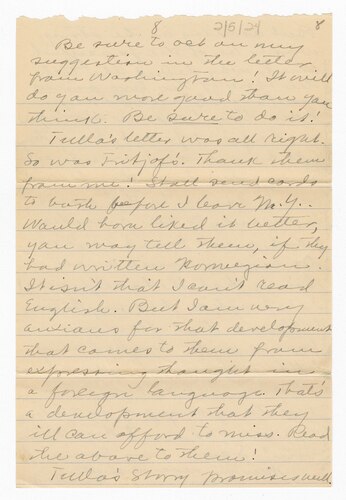 8 2/5/24 8
Be sure to act on my
suggestion in the letter
from Washington! It will
do you more good than you
think. Be sure to do it!
Tulla's letter was all right.
So was Fritjof's. Thank them
from me! Shall send cards
to both before I leave N.Y..
Would hav liked it better,
you may tell them, if they
had written Norwegian.
It isn't that I can't read
English. But I am very
anxious for that development
that comes to them from
expressing thought in
a foreign language. That's
a development that they
ill can afford to miss. Read
the above to them!
Tulla's Story promises well